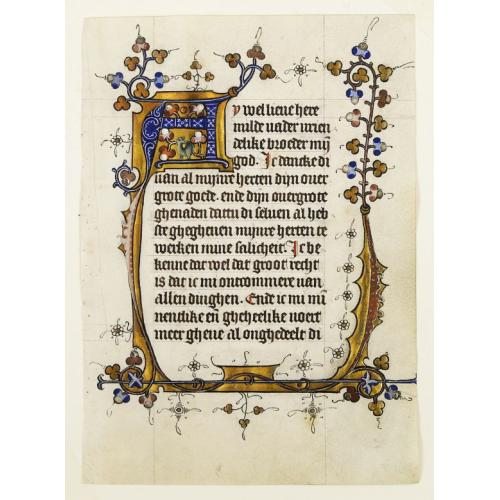 A y wel lieue here
milde uader innen
delike broeder mȳ
god. Ic dancke di
uan al mijnre herten dijn ouer
grote goede. ende dijn ouergrote
ghenaden dattu di seluen al heb
ste ghegheuen mijnre herten te
werken mine salicheit. Ic be
kenne dat wel dat groot recht
is dat ic mi ontcommere uan
allen dinghen. Ende ic mi mī
nentlike eñ gheheelike uoert
meer gheue al onghedeelt di